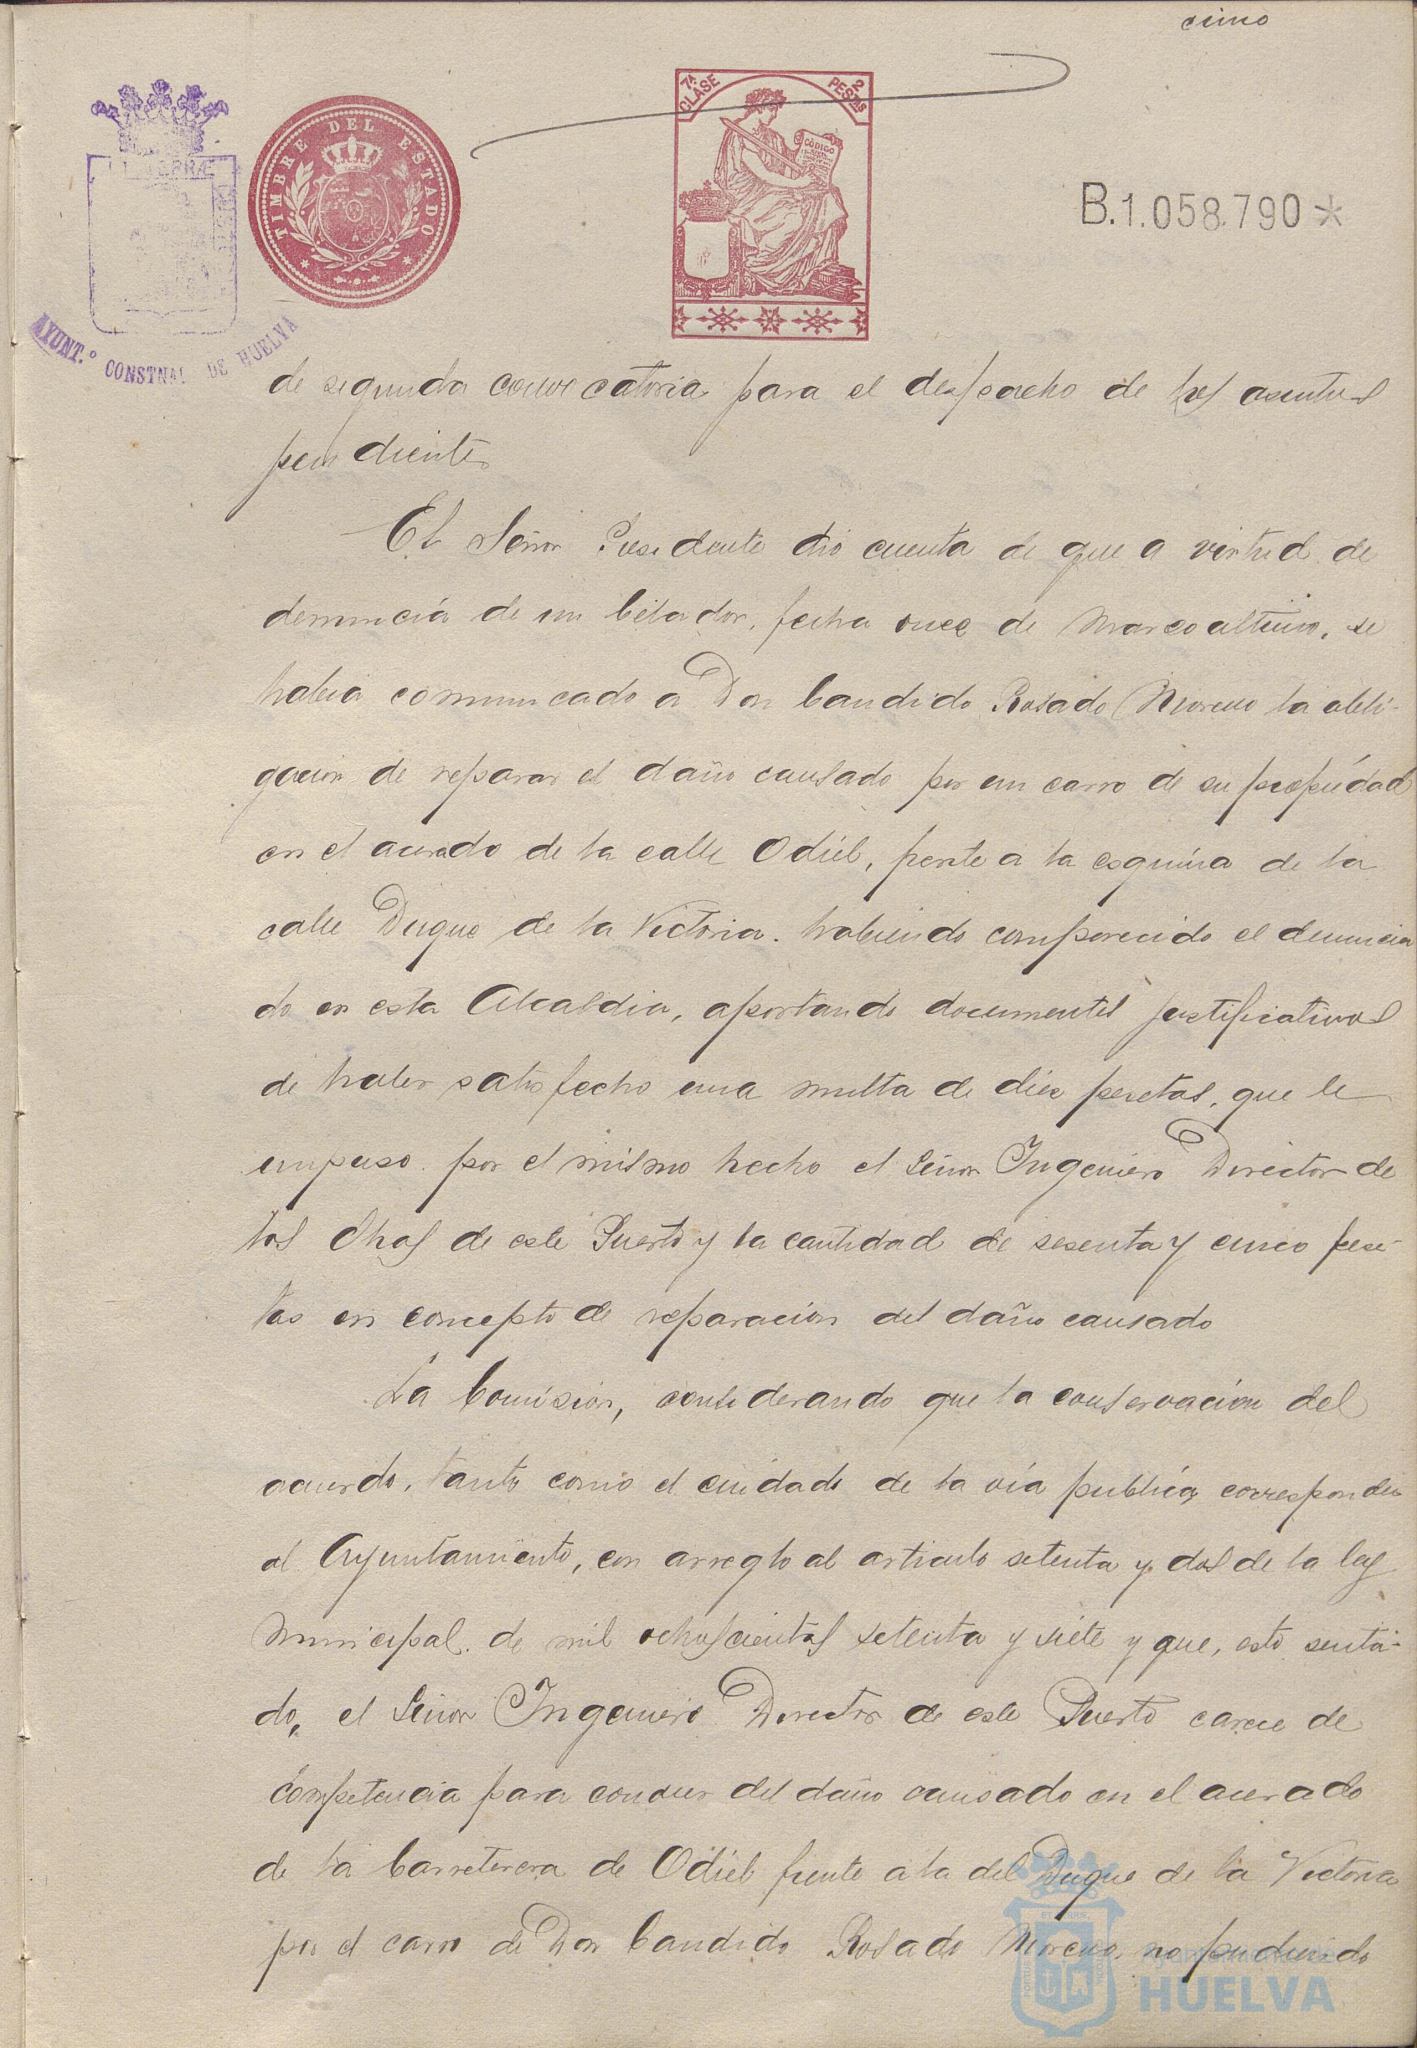 cinco
TIMBRE DEL ESTADO
7ª CLASE
2 PESETAS
CÓDIGO
B.1.058.790*
AYUNT.º CONSTNAL DE HUELVA
de segunda convocatoria para el despacho de los asuntos
pendientes
El Señor Presidente dió cuenta de que a virtud de
denuncia de un Celador, fecha once de Marzo ultimo, se
habia comunicado a Don Candido Rosado Moreno la obli-
gacion de reparar el daño causado por un carro de su propiedad
en el acerado de la calle Odiel, frente a la esquina de la
calle Duque de la Victoria. habiendo comparecido el denuncia
do en esta Alcaldia, aportando documentos justificativos
de haber satisfecho una multa de diez pesetas, que le
impuso por el mismo hecho el Señor Ingeniero Director de
las Obras de este Puerto y la cantidad de sesenta y cinco pese-
tas en concepto de reparacion del daño causado
La Comision, considerando que la conservacion del
acerado, tanto como el cuidado de la via publica corresponde
al Ayuntamiento, con arreglo al articulo setenta y dos de la ley
Municipal de mil ochoscientos setenta y siete y que, esto senta-
do, el Señor Ingeniero Director de este Puerto carece de
competencia para conocer del daño causado en el acerado
de la Carreterera de Odiel frente a la del Duque de la Victoria
por el carro de Don Candido Rosado Moreno, no pudiendo
Ayuntamiento de
HUELVA